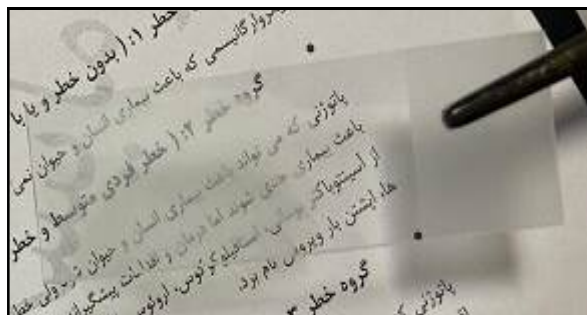 خطر ۱: ( بدون خطر و یا با
میکروارگانیسمی که باعث بیماری انسان و حیوان نمی
گروه خطر ۲: ( خطر فردی متوسط و خطر
پاتوژنی که می تواند باعث بیماری انسان و حیوان شود ولی
باعث بیماری جدی شوند اما درمان و اقدامات پیشگیرانه
از اسینتوباکتر بومانی، استافیلوکوکوس،
ها، اپشتن بار ویروس نام برد.
گروه خطر ۳
پاتوژنی که